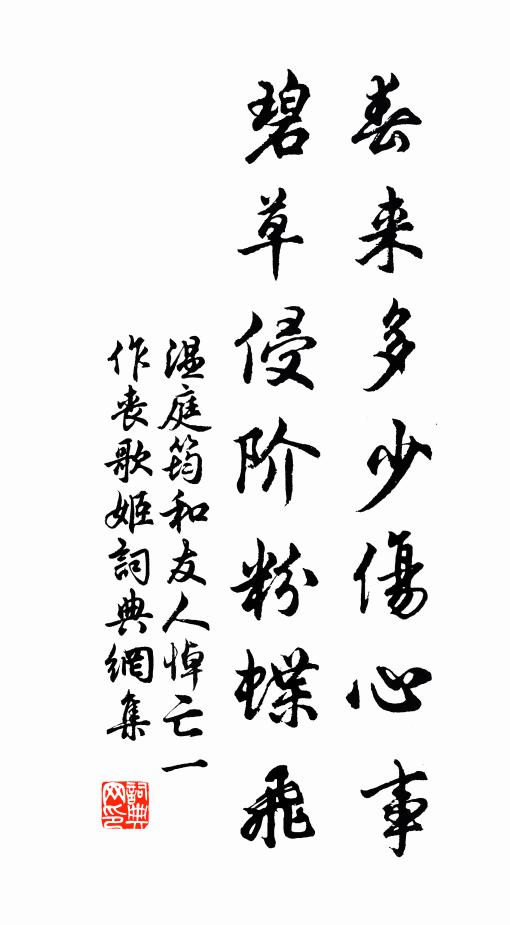 春来多少傷心事
碧草侵阶粉蝶飛
温庭筠和友人悼亡一
作丧歌姬詞典網集
詞典
网印